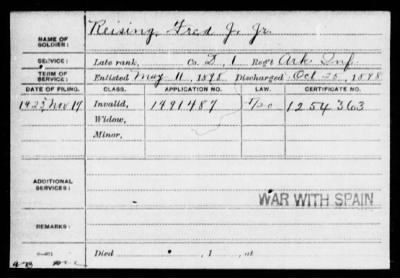 NAME OF SOLDIER: Reising, Fred J. Jr.
SERVICE: Late rank, Co. D, 1 Reg't Ark Inf.
TERM OF SERVICE: Enlisted May 11, 1898 Discharged Oct 25, 1898
DATE OF FILING. CLASS. APPLICATION NO. LAW. CERTIFICATE NO.
1923 Nov 19 Invalid, 1491487 1254363
Widow,
Minor,
ADDITIONAL SERVICES:
WAR WITH SPAIN
REMARKS:
Died , 1 , at